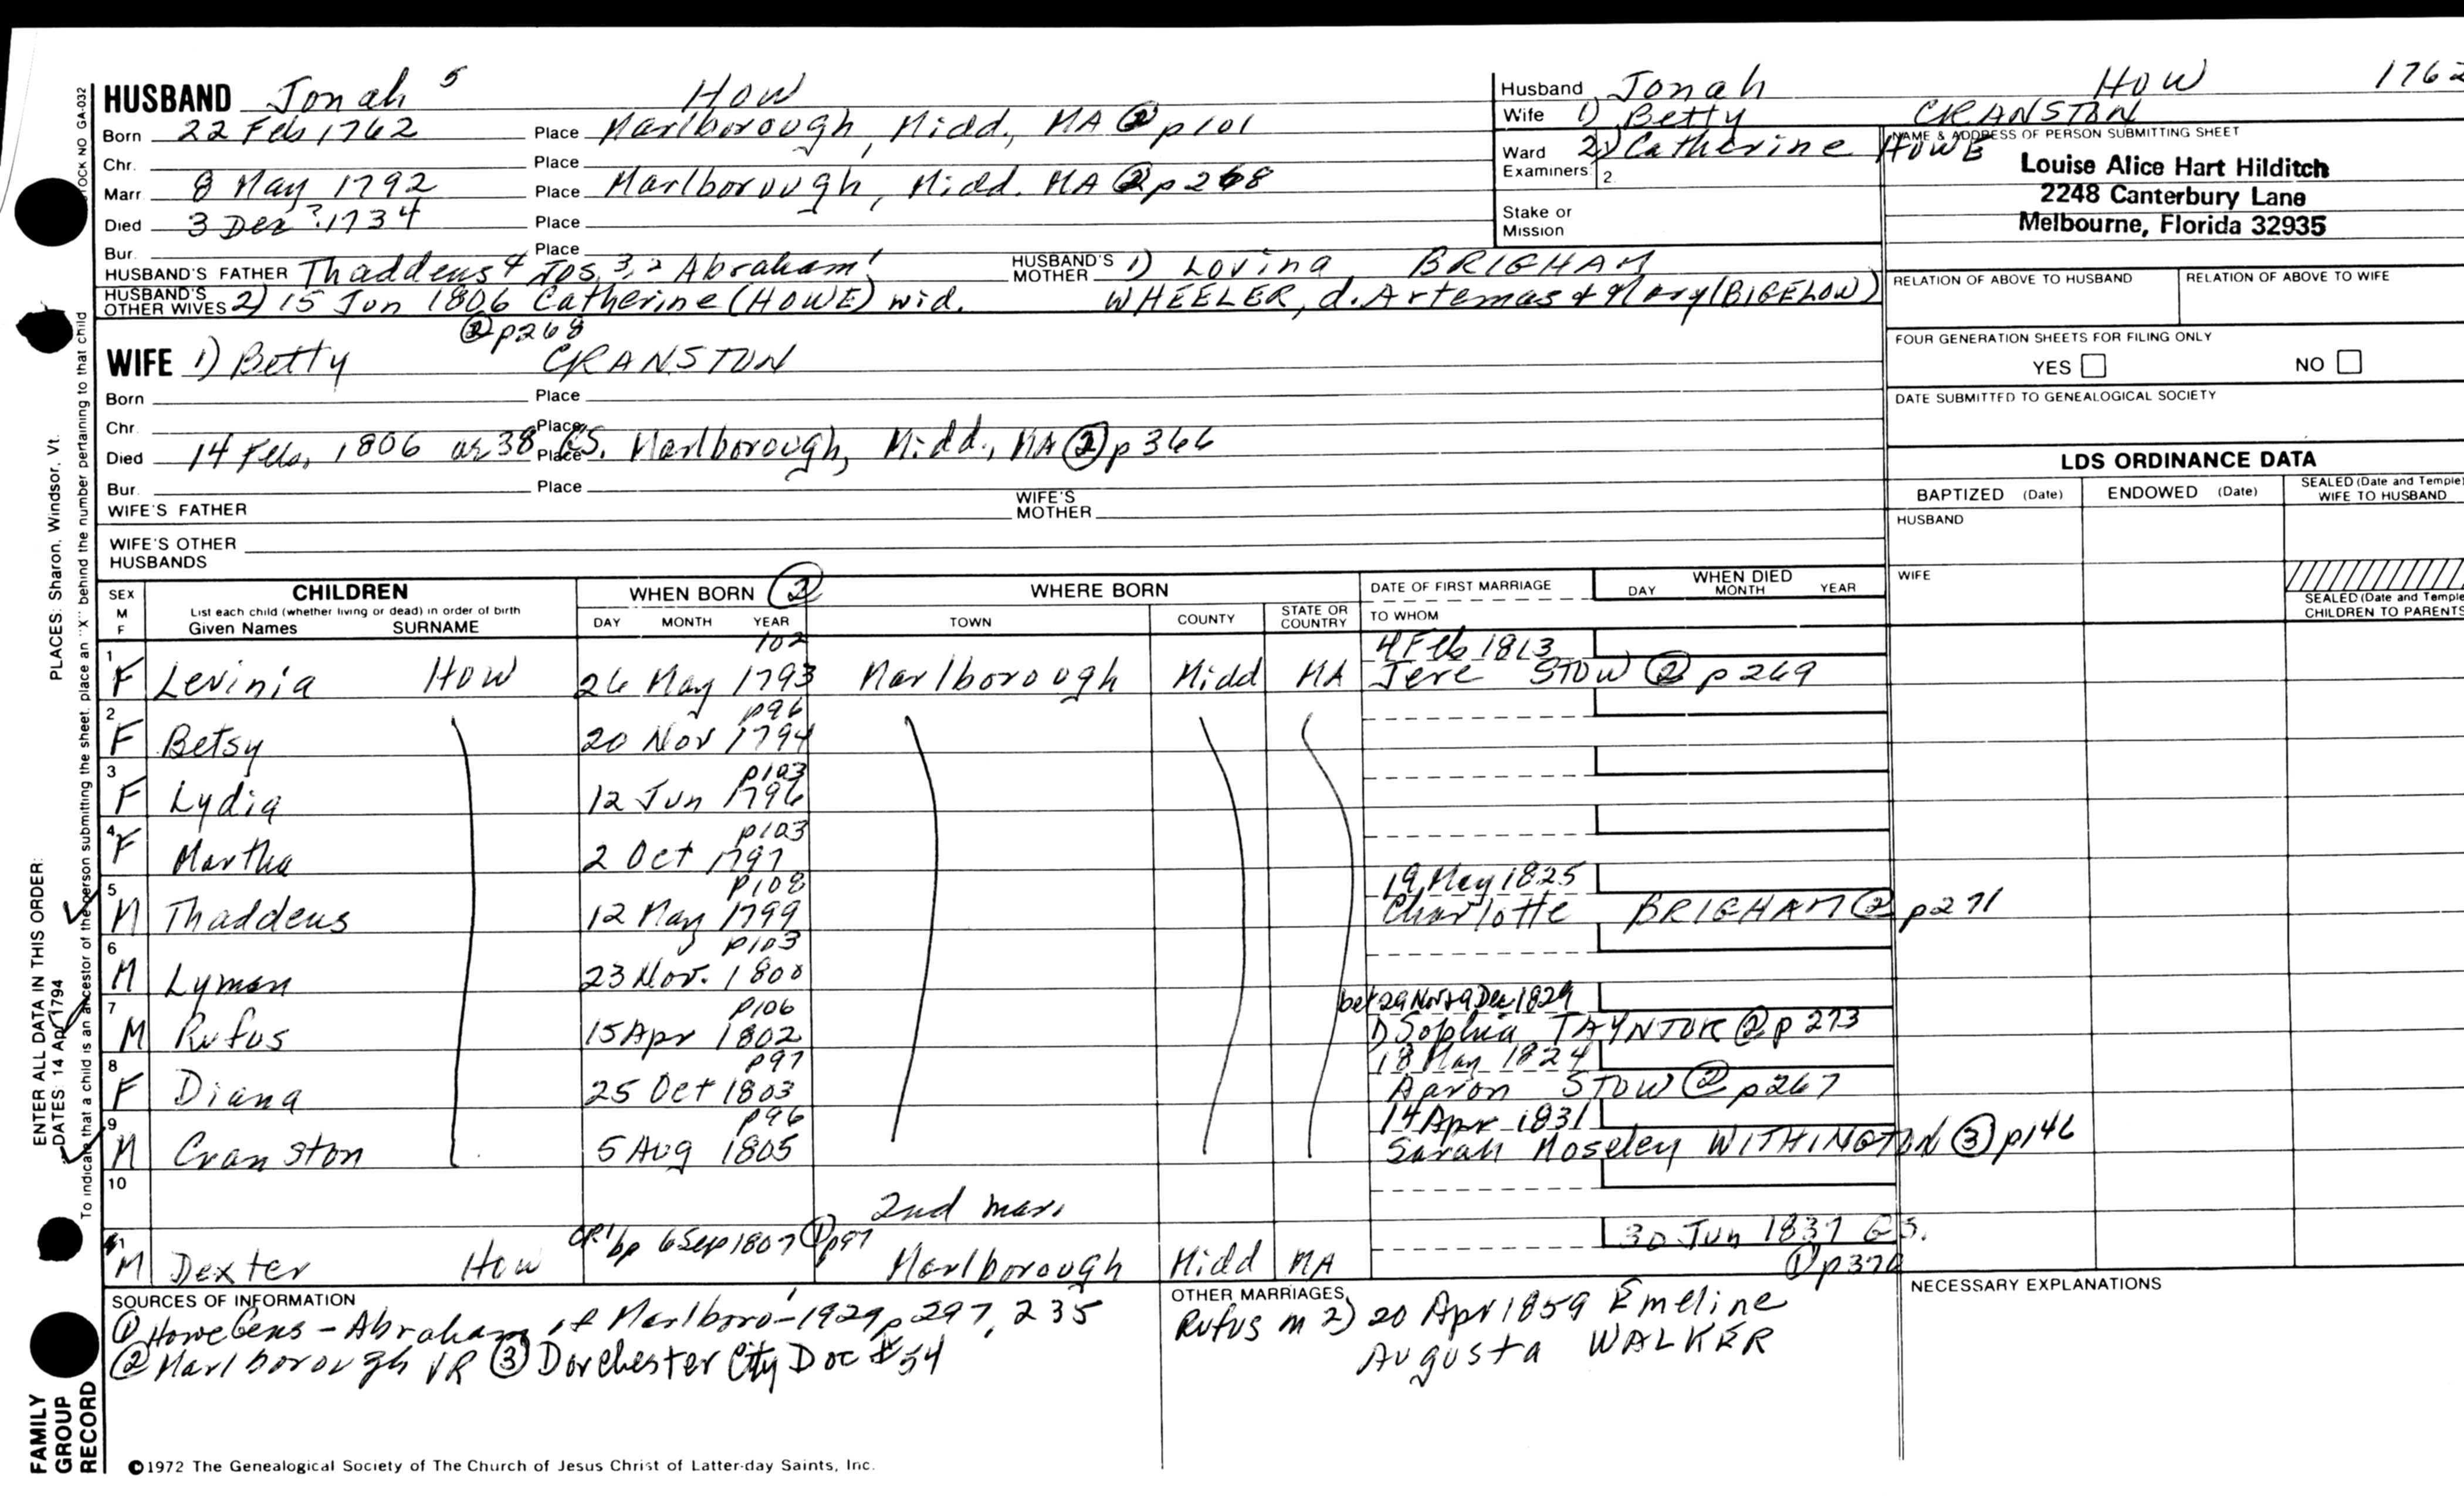 HUSBAND Jonah 5 How
Born 22 Feb 1762 Place Marlborough, Midd, MA ② p101
Chr. Place
Marr 8 May 1792 Place Marlborough, Midd. MA ② p268
Died 3 Dec ? 1734 Place
Bur. Place
HUSBAND'S FATHER Thaddeus 4 Jos 3, 2 Abraham 1 HUSBAND'S MOTHER 1) Lovina BRIGHAM
HUSBAND'S OTHER WIVES 2) 15 Jun 1806 Catherine (HOWE) wid. WHEELER, d. Artemas & Mary (BIGELOW)
② p268
WIFE 1) Betty CRANSTON
Born Place
Chr. Place
Died 14 Feb, 1806 ae 38 Place GS. Marlborough, Midd., MA ② p 366
Bur. Place
WIFE'S FATHER WIFE'S MOTHER
WIFE'S OTHER HUSBANDS
Husband Jonah How 1762
Wife 1) Betty CRANSTON
Ward 2) Catherine HOWE
Examiners: 2.
Stake or Mission
NAME & ADDRESS OF PERSON SUBMITTING SHEET
Louise Alice Hart Hilditch
2248 Canterbury Lane
Melbourne, Florida 32935
RELATION OF ABOVE TO HUSBAND RELATION OF ABOVE TO WIFE
FOUR GENERATION SHEETS FOR FILING ONLY
YES NO
DATE SUBMITTED TO GENEALOGICAL SOCIETY
LDS ORDINANCE DATA
BAPTIZED (Date) ENDOWED (Date) SEALED (Date and Temple) WIFE TO HUSBAND
HUSBAND
WIFE
SEALED (Date and Temple) CHILDREN TO PARENTS
SEX M F CHILDREN WHEN BORN ② WHERE BORN DATE OF FIRST MARRIAGE WHEN DIED
List each child (whether living or dead) in order of birth
Given Names SURNAME DAY MONTH YEAR TOWN COUNTY STATE OR COUNTRY TO WHOM DAY MONTH YEAR
102 4 Feb 1813
1 F Levinia How 26 May 1793 Marlborough Midd MA Jere STOW ② p 269
p96
2 F Betsy 20 Nov 1794
p103
3 F Lydia 12 Jun 1796
p103
4 F Martha 2 Oct 1797
p108 19 May 1825
5 M Thaddeus 12 May 1799 Charlotte BRIGHAM ② p271
p103
6 M Lyman 23 Nov. 1800
p106 bet 29 Nov & 9 Dec 1829
7 M Rufus 15 Apr 1802 1) Sophia TAYNTOR ② p 273
p97 18 May 1824
8 F Diana 25 Oct 1803 Aaron STOW ② p267
p96 14 Apr 1831
9 M Cranston 5 Aug 1805 Sarah Moseley WITHINGTON ③ p146
10
2nd mar.
M Dexter How CR1 bp 6 Sep 1807 ① p97 Marlborough Midd MA 30 Jun 1837 GS.
① p370
SOURCES OF INFORMATION
① Howe Gens - Abraham of Marlboro - 1929, p 297, 235
② Marlborough VR ③ Dorchester City Doc #54
OTHER MARRIAGES
Rufus m 2) 20 Apr 1859 Emeline
Augusta WALKER
NECESSARY EXPLANATIONS
©1972 The Genealogical Society of The Church of Jesus Christ of Latter-day Saints, Inc.
FAMILY GROUP RECORD
ENTER ALL DATA IN THIS ORDER:
DATES: 14 Apr 1794
PLACES: Sharon, Windsor, Vt.
To indicate that a child is an ancestor of the person submitting the sheet, place an "X" behind the number pertaining to that child
STOCK NO GA-032